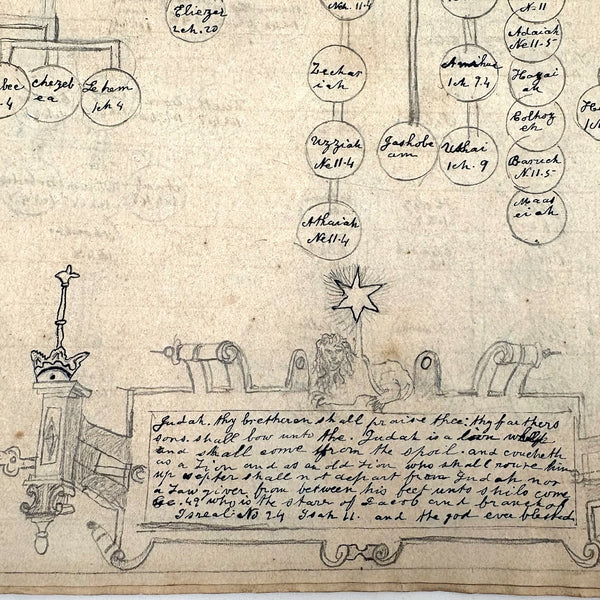 Eliezer
2ch.20
Neh. 11.4
N=11
Adaiah
Ne11-5
Zechar
iah
Amihud
1ch 7.4
Hazai
ah
bee
.4
Chezeb
ea
Lehem
1ch 4
Colhoz
eh
Uzziah
Ne11.4
Jashobe
am
Uthai
1ch. 9
Baruch
N.11.5
Maas
eiah
Athaiah
Ne11.4
Judah. thy bretheren shall praise thee: thy farthers
sons. shall bow unto the. Judah is a lion welp
and shall come from the spoil. and coucheth
as a Lion and as an old Lion who shall route him
up septer shall not depart from Judah nor
a Law giver from between his feet unto shilo come
Ge. 49 who is the starr of Jacob and branch of
Isreal. No 24 Isah 11. and the god ever blessed